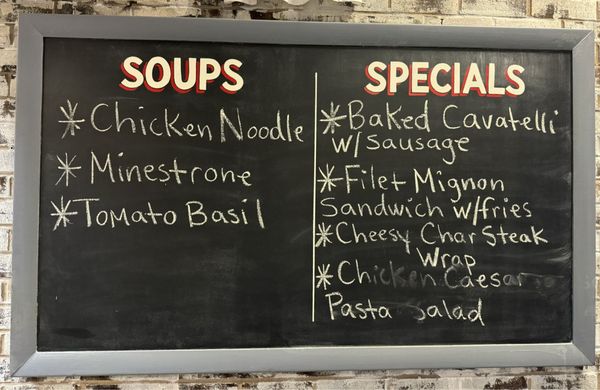 SOUPS
*Chicken Noodle
*Minestrone
*Tomato Basil
SPECIALS
*Baked Cavatelli
w/sausage
*Filet Mignon
Sandwich w/fries
*Cheesy Char Steak
Wrap
*Chicken Caesar
Pasta Salad